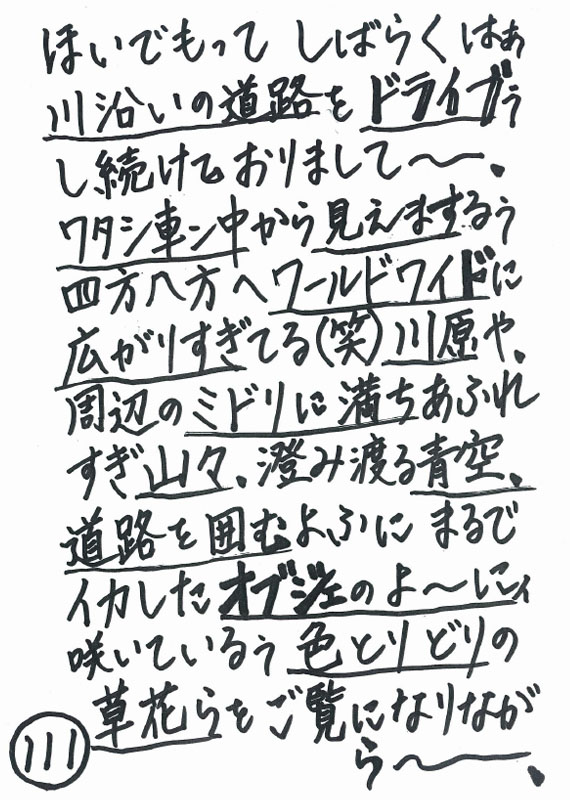 ほいでもって しばらく はぁ
川沿いの道路を ドライブぅ
し続けておりまして〜〜、
ワタシ車ン中から見えまするぅ
四方八方へワールドワイドに
広がりすぎてる(笑)川原や、
周辺のミドリに満ちあふれ
すぎ山々、澄み渡る青空、
道路を囲むよふに まるで
イカしたオブジェのよ〜にィ
咲いているぅ 色とりどりの
草花らをご覧になりなが
ら〜〜、
111